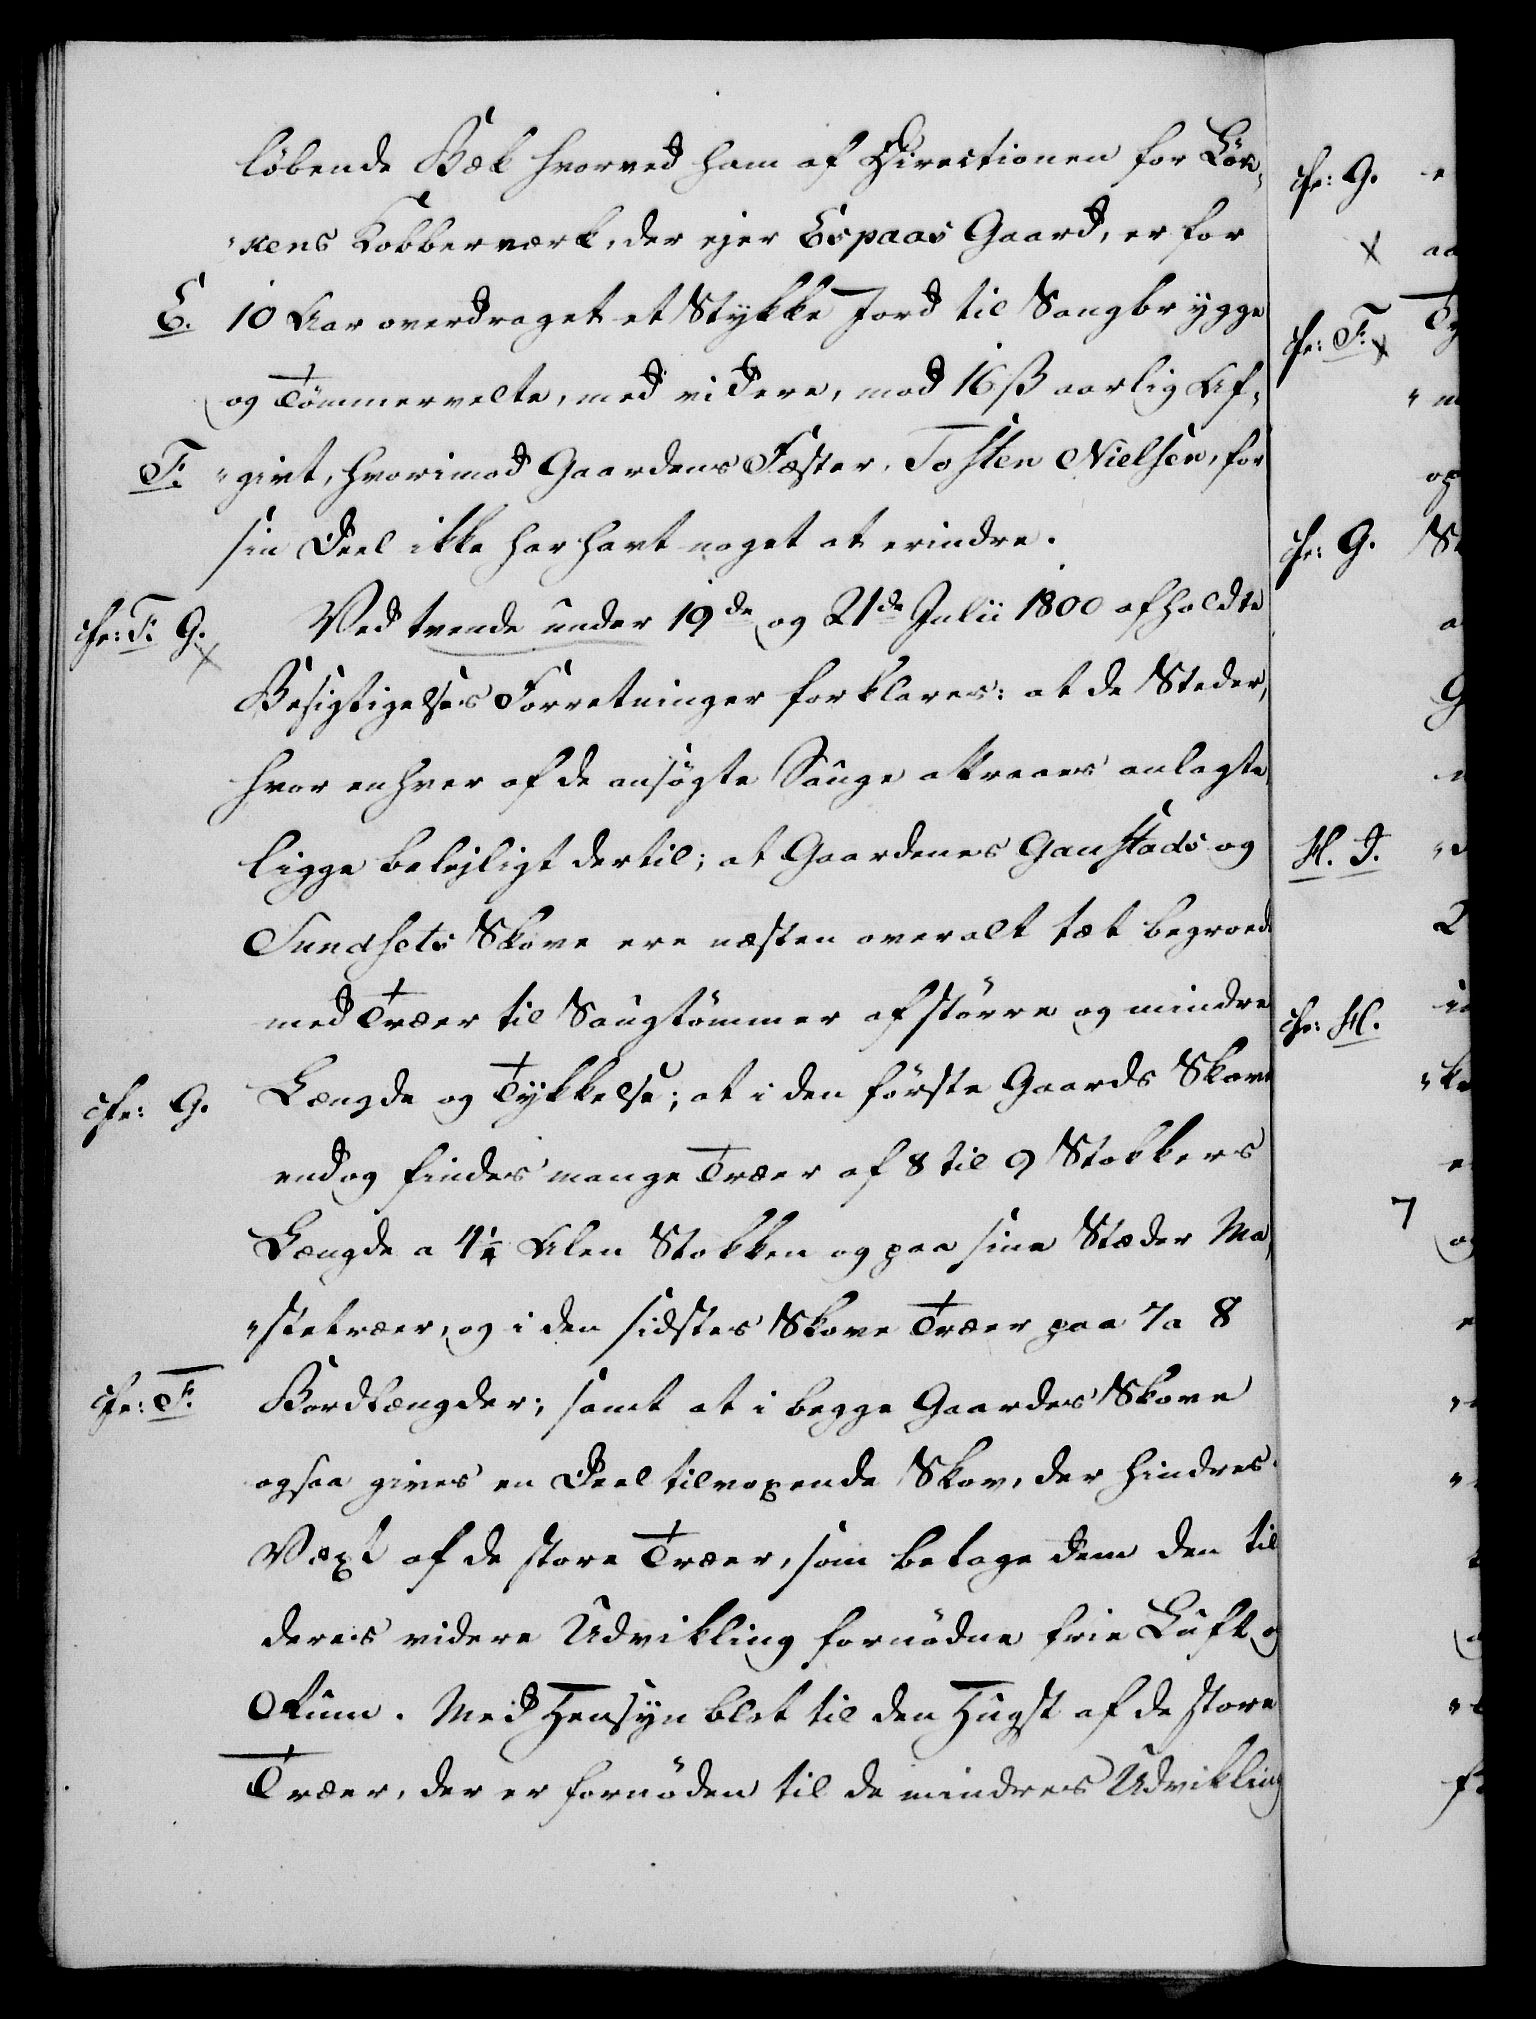 løbende Bæk hvorved ham af Directionen for Løk-
"kens Kobberværk, der ejer Espaas Gaard, er for
E. 10 Aar overdraget et Stykke Jord til Saugbrygge
og Tømmervelte, med videre, mod 16 ß aarlig Af-
F. "givt, hvorimod Gaardens Fæster, Tosten Nielsen, for
sin Deel ikke har havt noget at erindre.
cfr: F. G. Ved tvende under 19de og 21de Julii 1800 afholdte
Besigtigelses Forretninger forklares: at de Steder,
hvor enhver af de ansøgte Sauge attraaes anlagte
ligge belejligt dertil; at Gaardenes Gaustads og
Sundsets Skove ere næsten overalt tæt begroede
med Træer til Saugtømmer af større og mindre
cfr: G. Længde og Tykkelse; at i den første Gaards Skov
endog findes mange Træer af 8 til 9 Stokkers
Længde a 4½ Alen Stokken og paa sine Stæder Ma-
"stetræer, og i den sidstes Skove Træer paa 7 a 8
cfr: F. Bordlængder; samt at i begge Gaardes Skove
ogsaa gives en Deel tilvoxende Skov, der hindres i
Væxt af de store Træer, som betage dem den til
deres videre Udvikling fornødne frie Luft og
Rum. Med Hensyn blot til den Hugst af de store
Træer, der er fornøden til de mindres Udvikling
cfr: G.
cfr: F.
cfr: G.
H. I.
cfr: H.